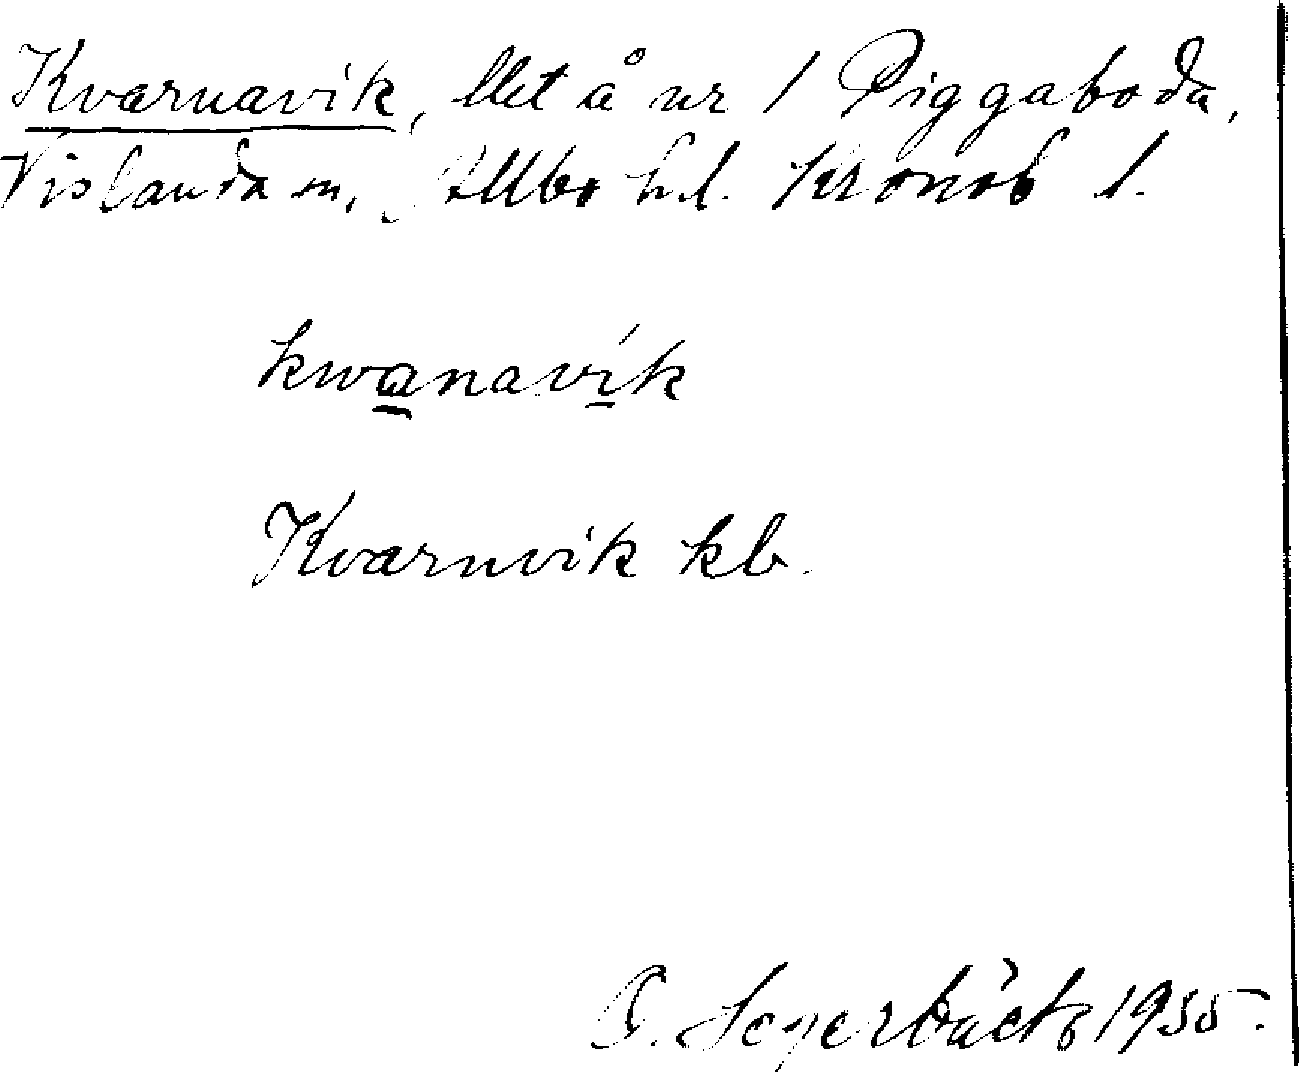 Kvarnavik, llet å nr 1 Piggaboda,
Vislanda sn, Allbo hd. Kronob l.
kwanavik
Kvarnvik kb.
P. Segerbäck 1955.